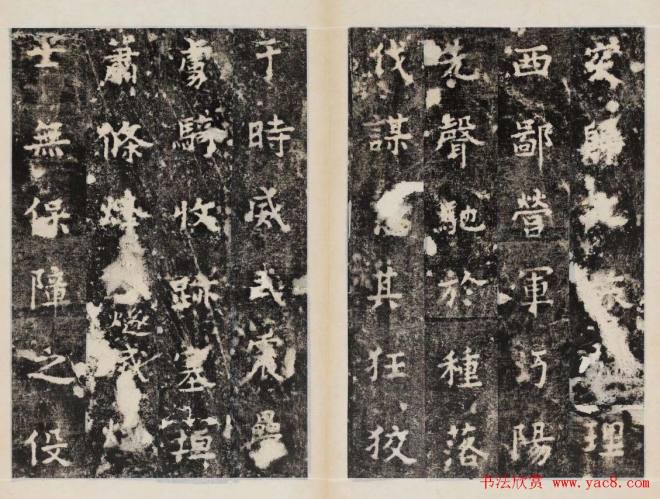 突歸□□□理
西鄙營軍沔陽
先聲馳於種落
伐謀□其狂狡
于時威武震疊
虜騎收跡塞垣
蕭條烽□燧或
士無保障之役
书法欣赏 www.yac8.com